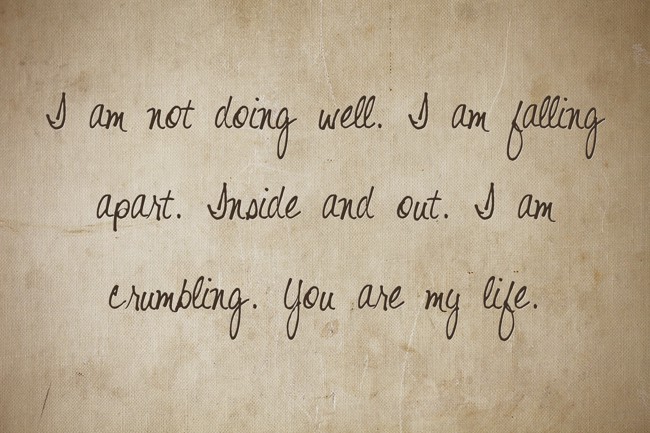 I am not doing well. I am falling
apart. Inside and out. I am
crumbling. You are my life.